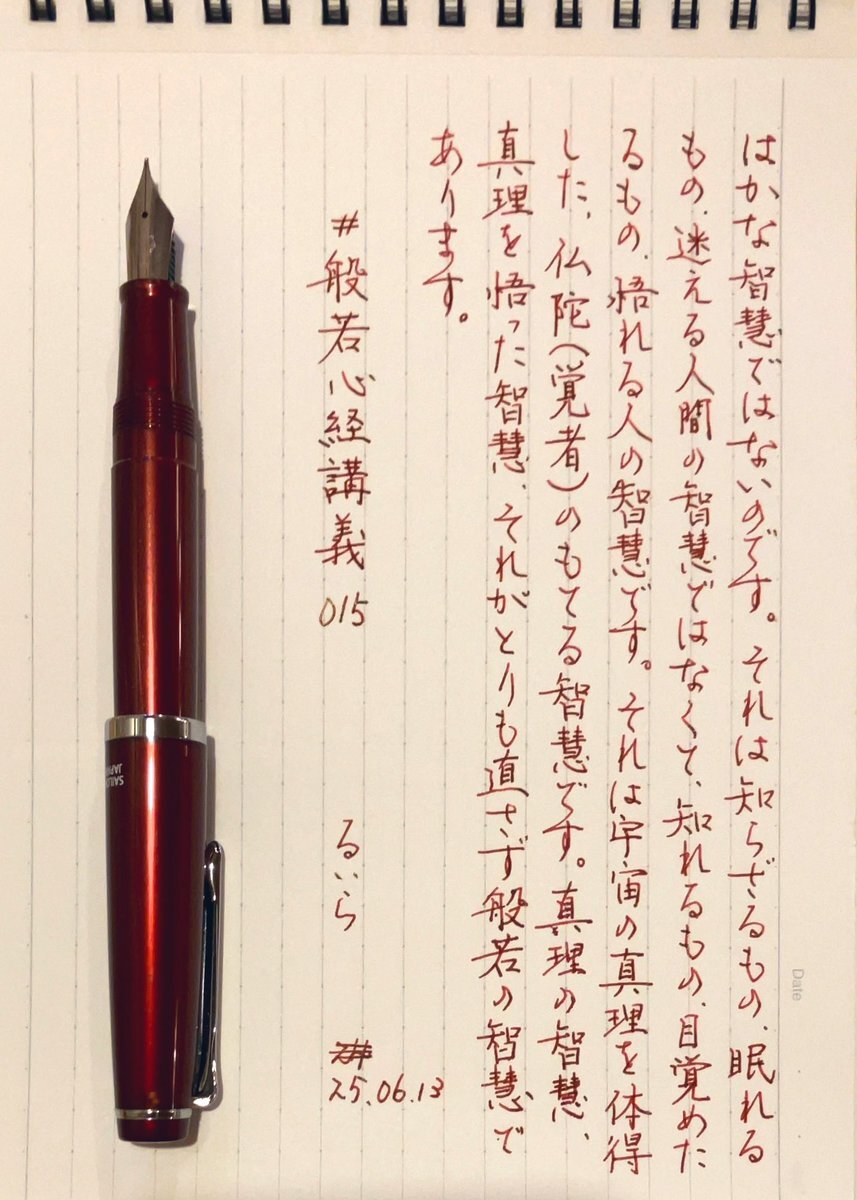 はかな智慧ではないのです。それは知らざるもの、眠れる
もの、迷える人間の智慧ではなくて、知れるもの、目覚めた
るもの、悟れる人の智慧です。それは宇宙の真理を体得
した、仏陀(覚者)のもてる智慧です。真理の智慧、
真理を悟った智慧、それがとりも直さず般若の智慧で
あります。
#般若心経講義 015
るいら
25.06.13
Date
SAILOR
JAPAN